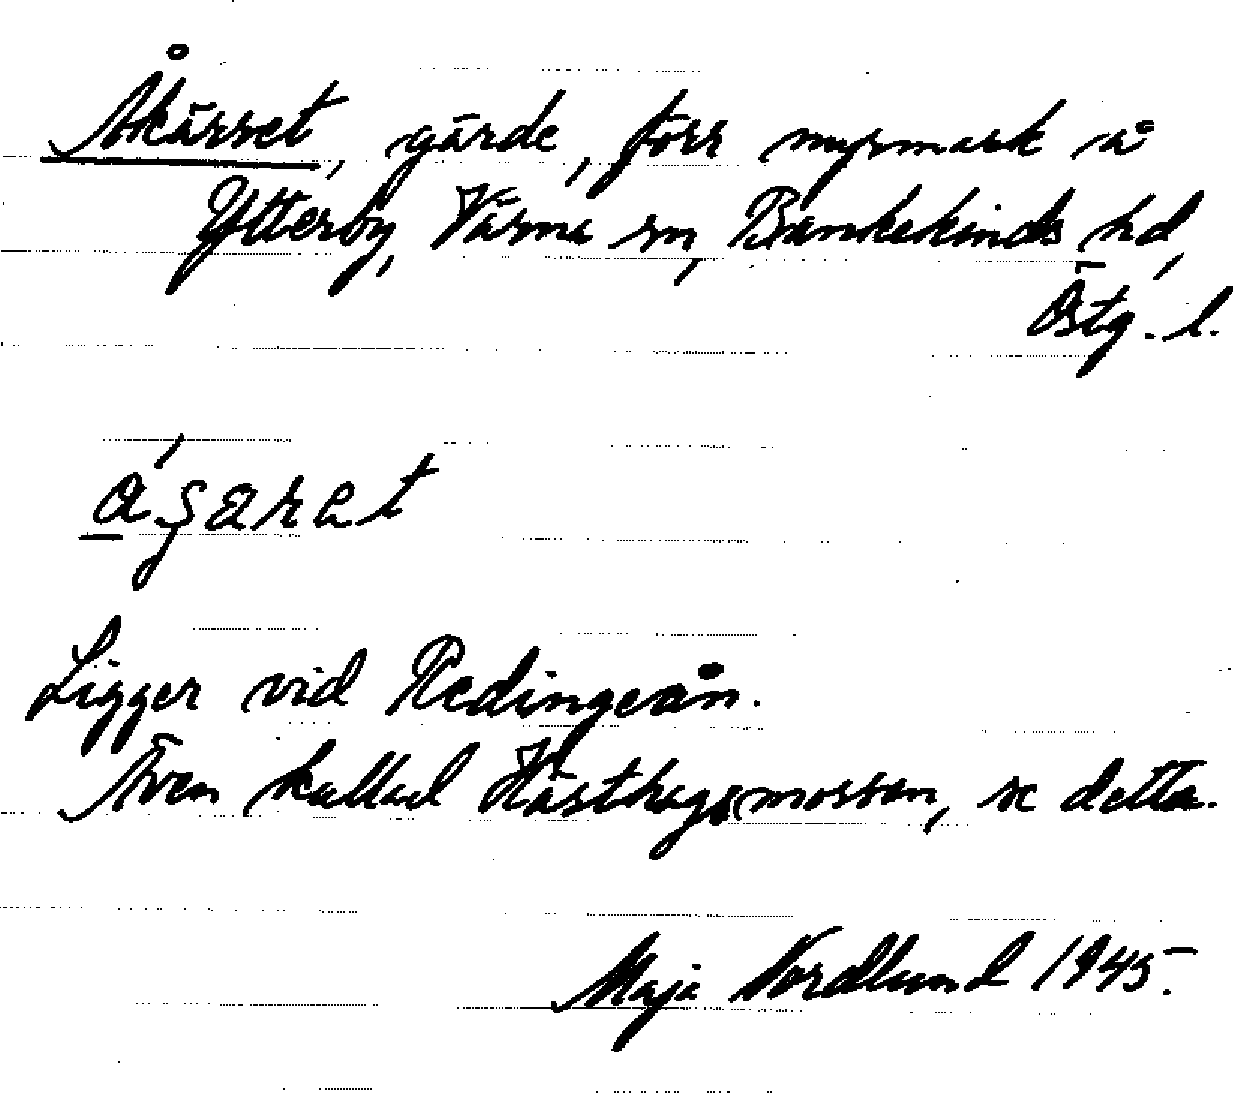 Åkärret, gärde, förr myrmark å
Ytterby, Värna sn, Bankekinds hd,
Östg. l.
Ligger vid Redingeån.
Även kallad Hästhagsmossen, se detta.
Maja Nordlund 1945.